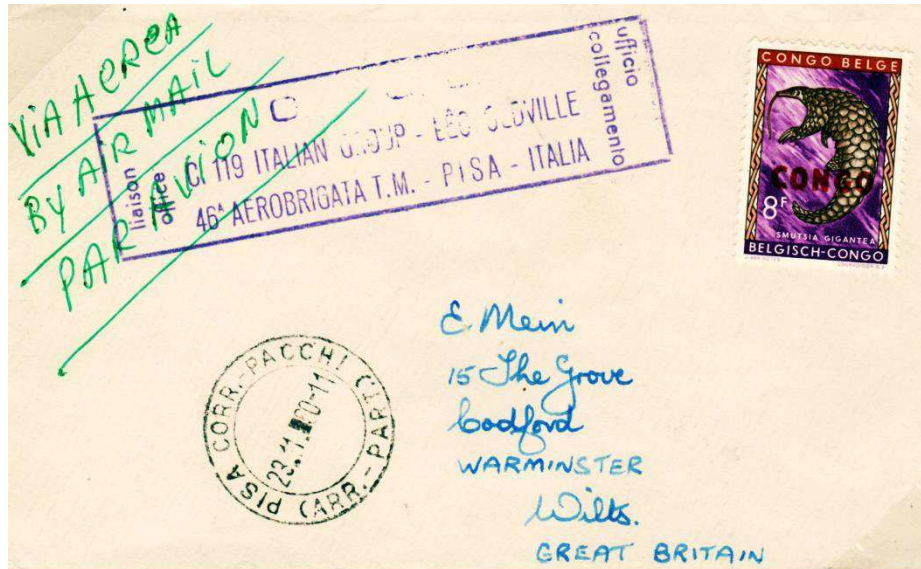 VIA AEREA
BY AIR MAIL
PAR AVION
liaison
office
C 119 ITALIAN GROUP - LEOPOLDVILLE
46ª AEROBRIGATA T.M. - PISA - ITALIA
ufficio
collegamento
CONGO BELGE
CONGO
8F
SMUTSIA GIGANTEA
BELGISCH-CONGO
PISA CORR.-PACCHI (ARR.-PART.)
23.11. 60-11
E. Mein
15 The Grove
Codford
WARMINSTER
Wilts.
GREAT BRITAIN